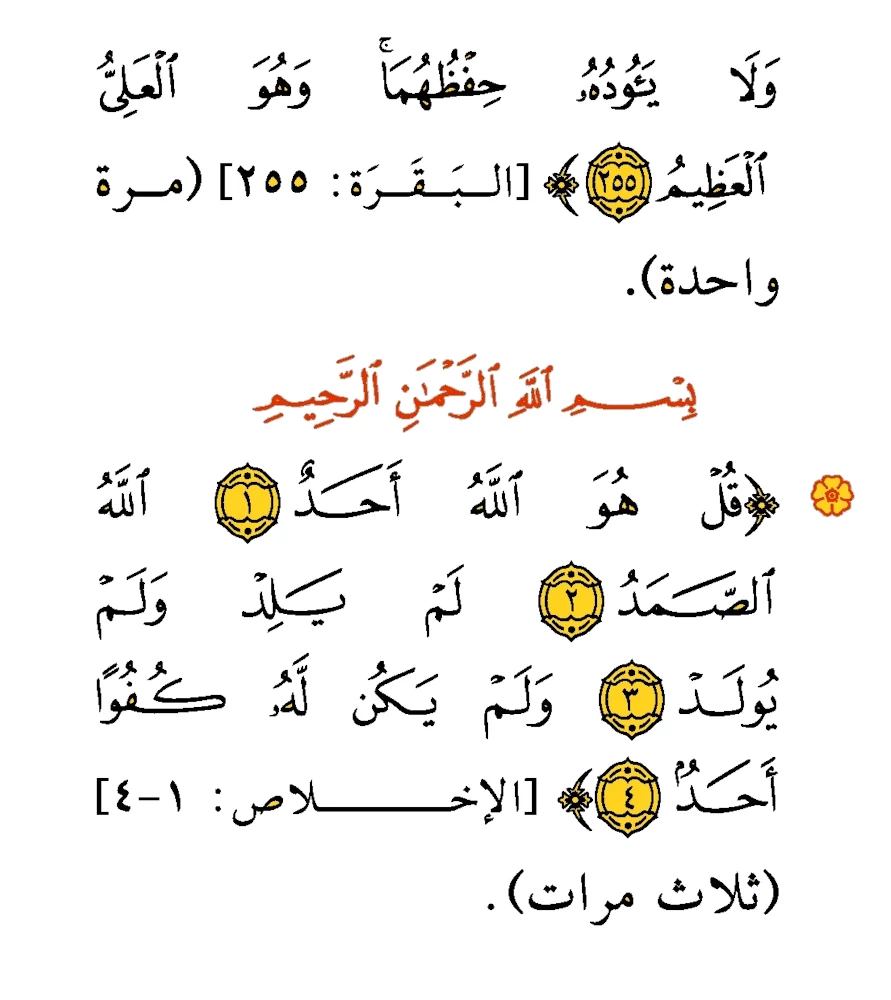 وَلَا يَـُٔودُهُۥ حِفۡظُهُمَاۚ وَهُوَ ٱلۡعَلِيُّ
ٱلۡعَظِيمُ ٢٥٥﴾ [البَقَرَة: ٢٥٥] (مرة
واحدة).
بِسۡمِ ٱللَّهِ ٱلرَّحۡمَٰنِ ٱلرَّحِيمِ
﴿قُلۡ هُوَ ٱللَّهُ أَحَدٌ ١ ٱللَّهُ
ٱلصَّمَدُ ٢ لَمۡ يَلِدۡ وَلَمۡ
يُولَدۡ ٣ وَلَمۡ يَكُن لَّهُۥ كُفُوًا
أَحَدُۢ ٤﴾ [الإخلاص: ١-٤]
(ثلاث مرات).